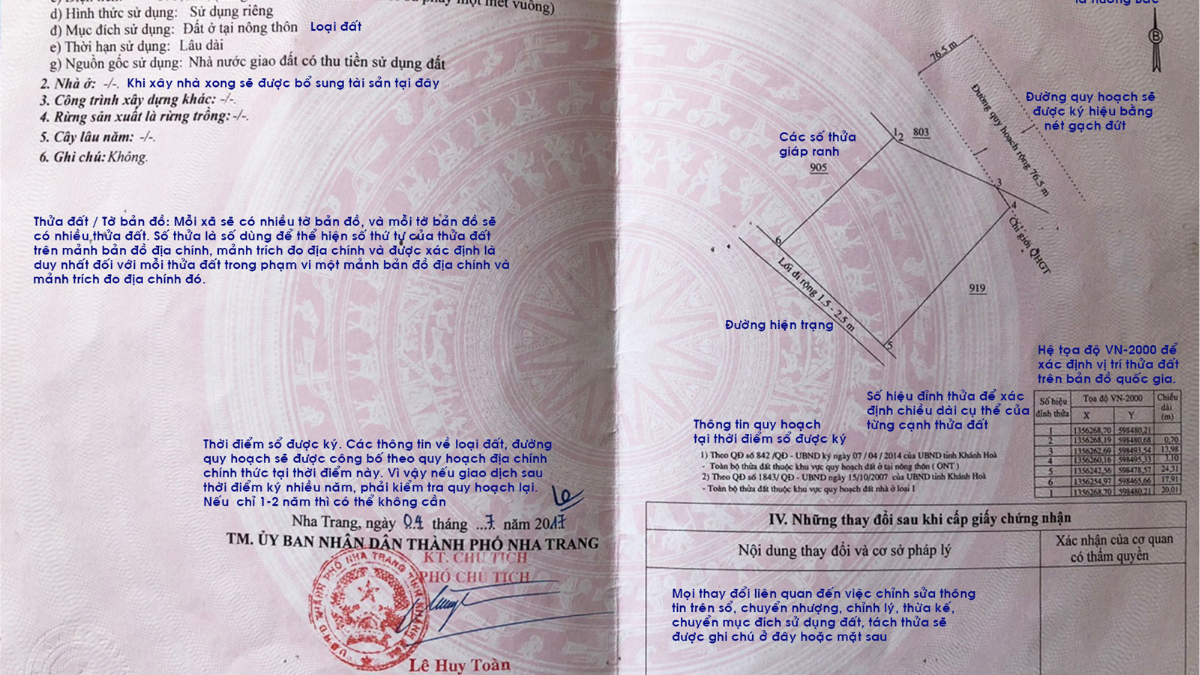 d) Hình thức sử dụng: Sử dụng riêng
đ) Mục đích sử dụng: Đất ở tại nông thôn Loại đất
e) Thời hạn sử dụng: Lâu dài
g) Nguồn gốc sử dụng: Nhà nước giao đất có thu tiền sử dụng đất
2. Nhà ở: -/-. Khi xây nhà xong sẽ được bổ sung tài sản tại đây
3. Công trình xây dựng khác: -/-.
4. Rừng sản xuất là rừng trồng: -/-.
5. Cây lâu năm: -/-.
6. Ghi chú: Không.
Thửa đất / Tờ bản đồ: Mỗi xã sẽ có nhiều tờ bản đồ, và mỗi tờ bản đồ sẽ
có nhiều thửa đất. Số thửa là số dùng để thể hiện số thứ tự của thửa đất
trên mảnh bản đồ địa chính, mảnh trích đo địa chính và được xác định là
duy nhất đối với mỗi thửa đất trong phạm vi một mảnh bản đồ địa chính và
mảnh trích đo địa chính đó.
Thời điểm sổ được ký. Các thông tin về loại đất, đường
quy hoạch sẽ được công bố theo quy hoạch địa chính
chính thức tại thời điểm này. Vì vậy nếu giao dịch sau
thời điểm ký nhiều năm, phải kiểm tra quy hoạch lại.
Nếu chỉ 1-2 năm thì có thể không cần
Nha Trang, ngày 04 tháng ...7 năm 2017
TM. ỦY BAN NHÂN DÂN THÀNH PHỐ NHA TRANG
KT. CHỦ TỊCH
PHÓ CHỦ TỊCH
Lê Huy Toàn
B
76.5 m
Đường quy hoạch rộng 76.5 m
Đường quy hoạch sẽ
được ký hiệu bằng
nét gạch đứt
Các số thửa
giáp ranh
905
1
2
803
3
4
Chỉ giới QHGT
6
Lối đi rộng 1.5 - 2.5 m
919
5
Đường hiện trạng
Hệ tọa độ VN-2000 để
xác định vị trí thửa đất
trên bản đồ quốc gia.
Số hiệu đỉnh thửa để xác
định chiều dài cụ thể của
từng cạnh thửa đất
Số hiệu đỉnh thửa Tọa độ VN-2000 Chiều dài (m)
X Y
1 1356268,70 598480,21
2 1356268.19 598480,68 0,70
3 1356262,69 598493,54 13,98
4 1356260,16 598495,33 3,10
5 1356242,56 598478,57 24,31
6 1356254,97 598465,66 17,91
1 1356268.70 598480.21 20,01
Thông tin quy hoạch
tại thời điểm sổ được ký
1) Theo QĐ số 842 /QĐ - UBND ký ngày 07 / 04 / 2014 của UBND tỉnh Khánh Hoà
- Toàn bộ thửa đất thuộc khu vực quy hoạch đất ở tại nông thôn ( ONT )
2) Theo QĐ số 1843/ QĐ - UBND ngày 15/10/2007 của UBND tỉnh Khánh Hoà
- Toàn bộ thửa đất thuộc khu vực quy hoạch đất nhà ở loại I
IV. Những thay đổi sau khi cấp giấy chứng nhận
Nội dung thay đổi và cơ sở pháp lý
Xác nhận của cơ quan
có thẩm quyền
Mọi thay đổi liên quan đến việc chỉnh sửa thông
tin trên sổ, chuyển nhượng, chỉnh lý, thừa kế,
chuyển mục đích sử dụng đất, tách thửa sẽ
được ghi chú ở đây hoặc mặt sau